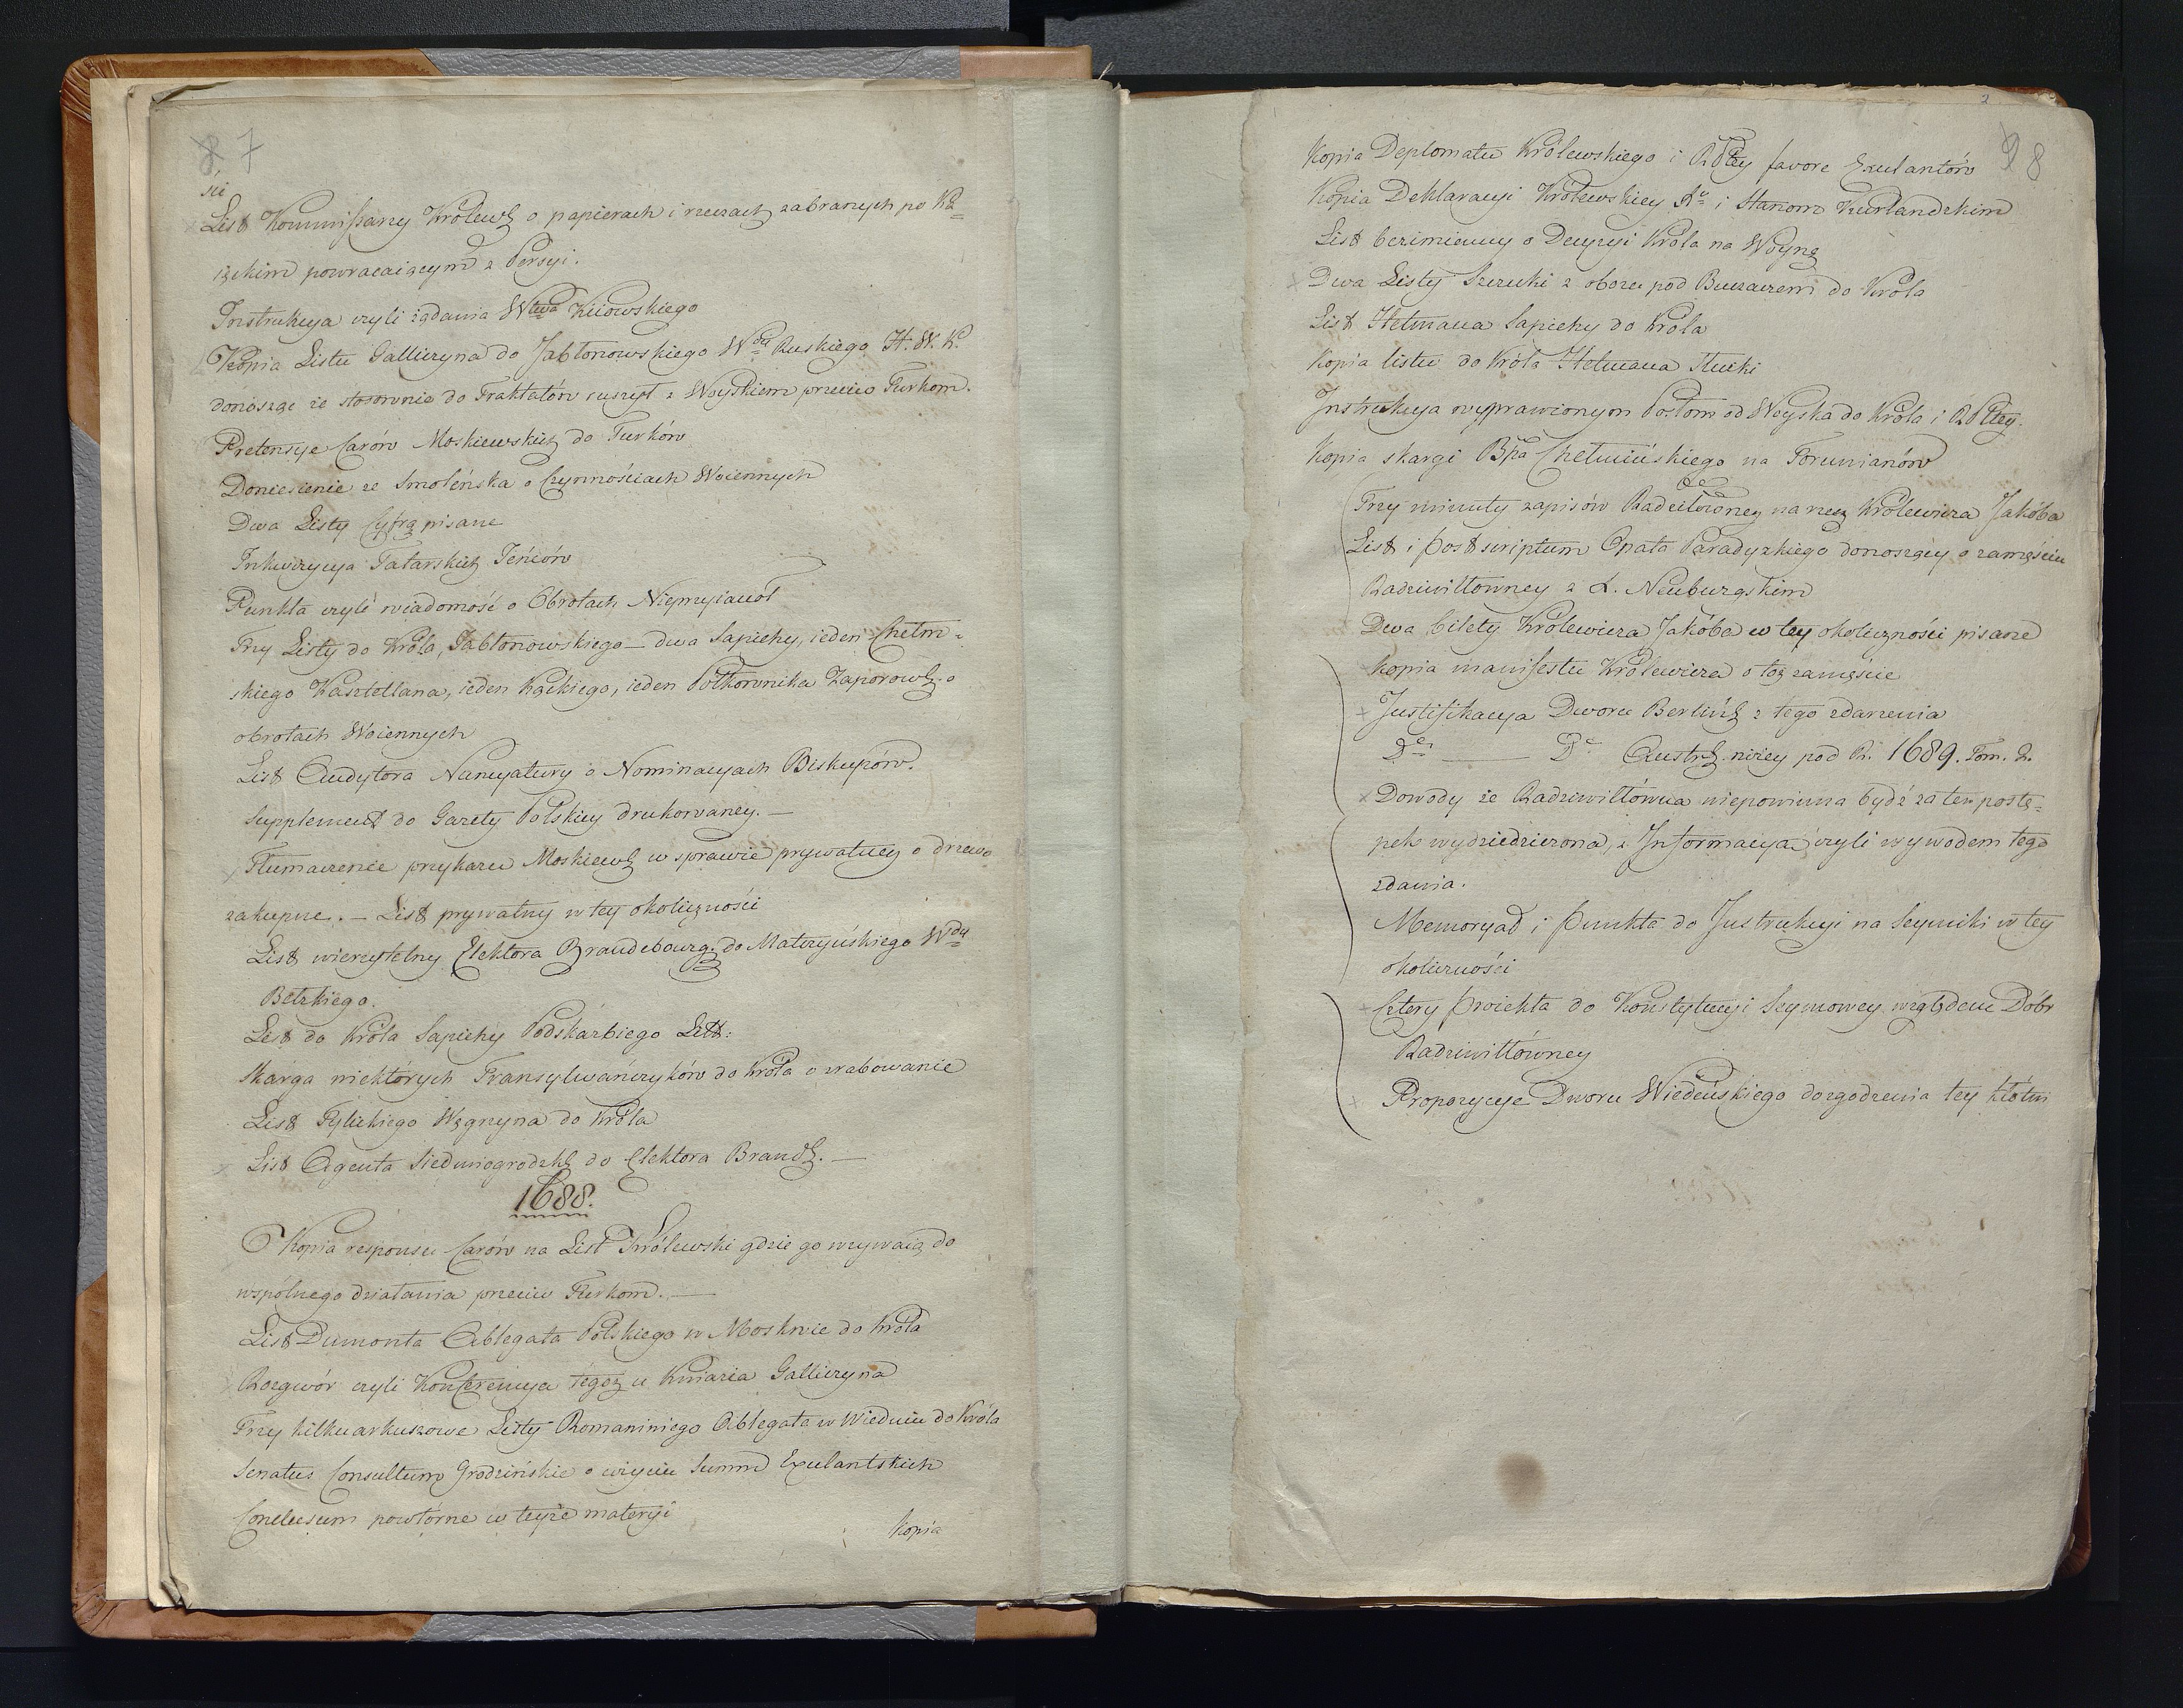 8 7
się
List Kommissarzy Królewsk o papierach i rzeczach zabranych po Ką=
iękim powracaiącym z Persyi.
Instrukcya czyli żądania Wtwa Kiiowskiego
Kopia Listu Galliczyna do Jabłonowskiego Wdy Ruskiego H. W. K.
donosząc że stosownie do Traktatów ruszył z Woyskiem przeciw Turkom.
Pretensye Carów Moskiewskich do Turków
Doniesienie ze Smoleńska o Czynnościach Woiennych
Dwa Listy Cyfrą pisane
Inkwizycya Tatarskich Jeńców
Punkta czyli wiadomość o Obrotach Nieprzyiaciół
Trzy Listy do Króla, Jabłonowskiego – dwa Sapiehy, ieden Chełm=
skiego Kasztellana, ieden Kąckiego, ieden Półkownika Zaporowsk. o
obrotach Woiennych
List Audytora Nuncyatury o Nominacyach Biskupów.
Supplement do Gazety Polskiey drukowaney. —
Tłumaczenie przykazu Moskiewsk w sprawie prywatney o drzewo
zakupne. – List prywatny w tey okoliczności
List wierzytelny Elektora Brandebourg. do Matczyńskiego Wdy
Bełzkiego.
List do Króla Sapiehy Podskarbiego Litt:
Skarga niektórych Transylwańczyków do Króla o zrabowanie
List Tylickiego Węgrzyna do Króla
List Agenta Siedmiogrodzk do Elektora Brand. —
1688.
Kopia responsu Carów na List Królewski gdzie go wzywaią do
wspólnego działania przeciw Turkom. —
List Dumonta Ablegata Polskiego w Moskwie do Króla
Rozgwór czyli Konferencya tegoż u Kniazia Galliczyna
Trzy kilku arkuszowe Listy Romaniniego Ablegata w Wiedniu do Króla
Senatus Consultum Grodzińskie o wzięciu Summ Exulantskich
Conclusum powtórne w teyże materyi
Kopia
2
9 8
Kopia Deplomatu Królewskiego i RPltey favore Exulantów
Kopia Deklaracyi Królewskiey i Stanom Kurlandzkim
List bezimienny o Decyzyi Króla na Woynę
Dwa Listy Szczuki z obozu pod Buczaczem do Króla
List Hetmana Sapiehy do Króla
Kopia listu do Króla Hetmana Słuzki
Instrukcya wyprawionym Posłom od Woyska do Króla i RPltey.
Kopia skargi Bpa Chełmińskiego na Torunianów
Trzy minuty zapisów Radziłówney na rzecz Królewicza Jakóba
List i postscriptum Opata Paradyzkiego donoszący o zamęściu
Radziwiłłowney z X. Neuburgskim
Dwa bilety Królewicza Jakóba w tey okoliczności pisane
Kopia manifestu Królewicza o toż zamęście
Justifikacya Dworu Berlińsk z tego zdarzenia
Do —— Do Austr. niżey pod R. 1689. Tom. 2.
Dowody że Radziwiłłówna niepowinna bydź za ten postę=
pek wydziedziczona, z Informacyą czyli wywodem tego
zdania.
Memoryał i punkta do Instrukcyi na Seymiki w tey
okoliczności
Cztery proiekta do Konstytucyi Seymowey względem Dóbr
Radziwiłłówney
Propozycye Dworu Wiedeńskiego do zgodzenia tey kłótni